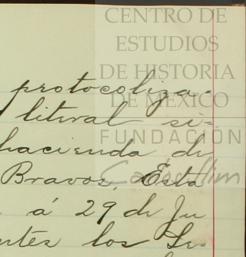 CENTRO DE
ESTUDIOS
DE HISTORIA
DE MÉXICO
protocoliza-
literal si-
FUNDACIÓN
hacienda de
Carlos Slim
Bravos, Esta
á 29 de Ju
ntes los Se-